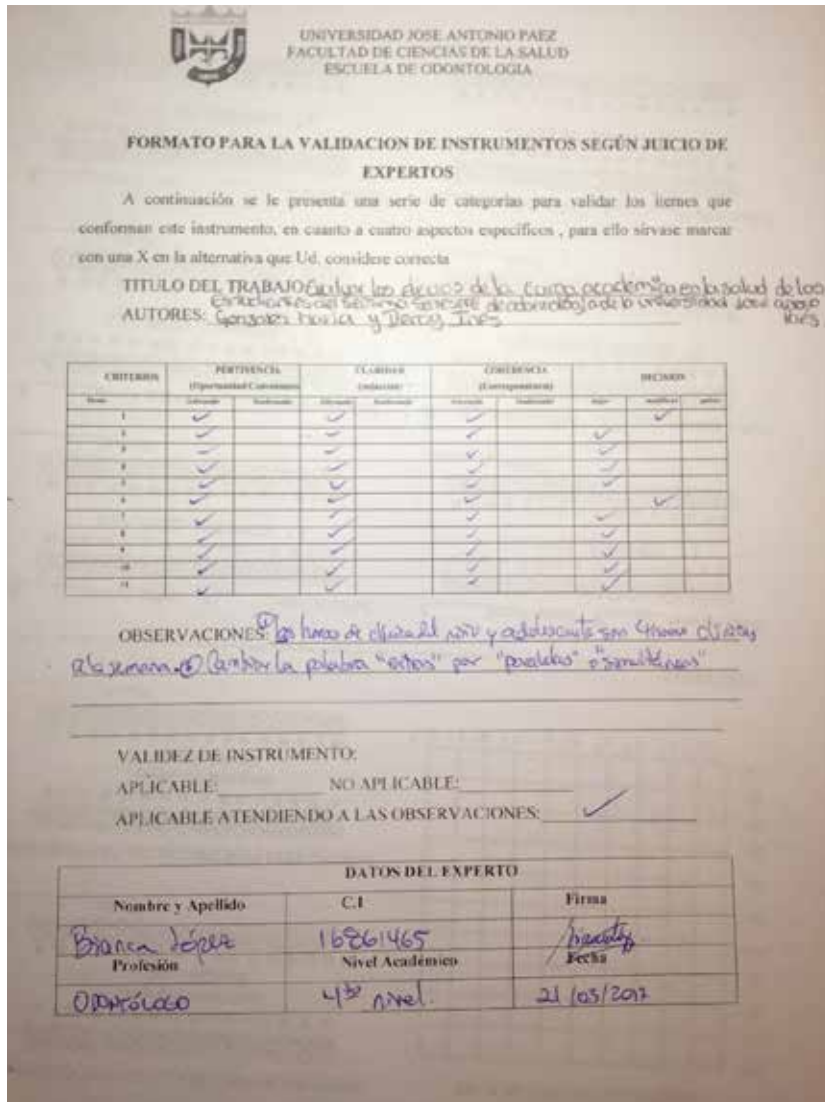 UNIVERSIDAD JOSE ANTONIO PAEZ
FACULTAD DE CIENCIAS DE LA SALUD
ESCUELA DE ODONTOLOGIA
FORMATO PARA LA VALIDACION DE INSTRUMENTOS SEGÚN JUICIO DE
EXPERTOS
A continuación se le presenta una serie de categorías para validar los itemes que
conforman este instrumento, en cuanto a cuatro aspectos específicos , para ello sírvase marcar
con una X en la alternativa que Ud. considere correcta
TITULO DEL TRABAJO los de la carga academica en la salud de los
Estudiantes del Septimo Semestre de odontologia de la universidad José
AUTORES: Gonzalez Maria y Ines
CRITERIOS PERTINENCIA CLARIDAD COHERENCIA DECISION
(Oportunidad (redacción) (Correspondencia)
1 ✓ ✓ ✓ ✓
2 ✓ ✓ ✓ ✓
3 ✓ ✓ ✓ ✓
4 ✓ ✓ ✓ ✓
5 ✓ ✓ ✓ ✓
6 ✓ ✓ ✓ ✓
7 ✓ ✓ ✓ ✓
8 ✓ ✓ ✓ ✓
9 ✓ ✓ ✓ ✓
10 ✓ ✓ ✓ ✓
11 ✓ ✓ ✓ ✓
OBSERVACIONES: las horas de clínica del niño y adolescente son 4 horas clínicas
a la semana. Cambiar la palabra por "paralelas" o "simultáneas"
VALIDEZ DE INSTRUMENTO:
APLICABLE: NO APLICABLE:
APLICABLE ATENDIENDO A LAS OBSERVACIONES: ✓
DATOS DEL EXPERTO
Nombre y Apellido C.I Firma
Bianca López 16861465
Profesión Nivel Académico Fecha
ODONTÓLOGO 4to nivel. 21/03/2017